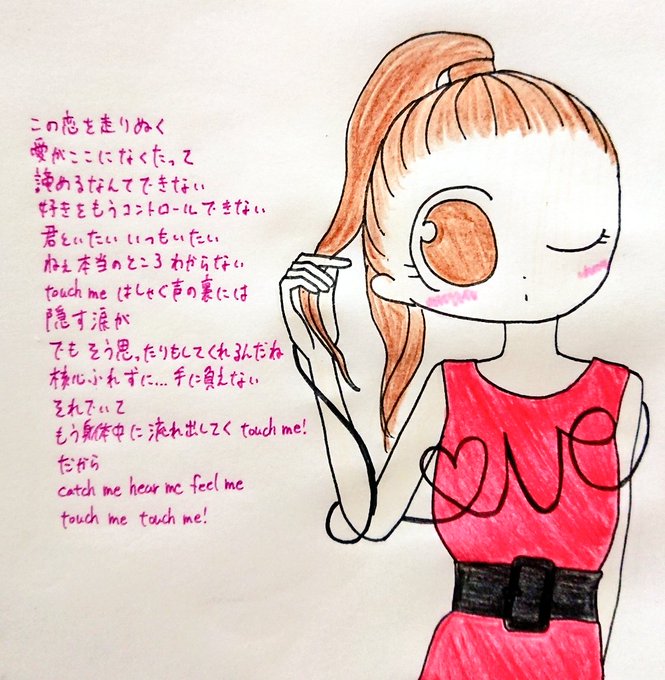 この恋を走りぬく
愛がここになくたって
諦めるなんてできない
好きをもうコントロールできない
君といたい いつもいたい
ねぇ本当のところ わからない
touch me はしゃぐ声の裏には
隠す涙が
でも そう思ったりもしてくれるんだね
核心ふれずに...手に負えない
それでいて
もう身体中に流れ出してく touch me!
だから
catch me hear me feel me
touch me touch me!
LOVE